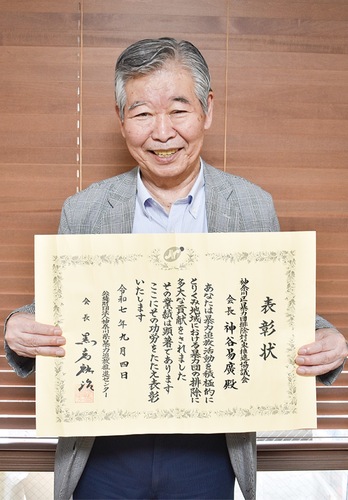 表彰状
神奈川区暴力団排除対策推進協議会
会長 神谷易廣 殿
あなたは暴力追放活動を積極的に
とりくみ地域における暴力団の排除に
多大な貢献をされました
その業績は顕著であります
ここにその功労をたたえ表彰
いたします
令和七年九月四日
公益財団法人神奈川県暴力追放推進センター
会長